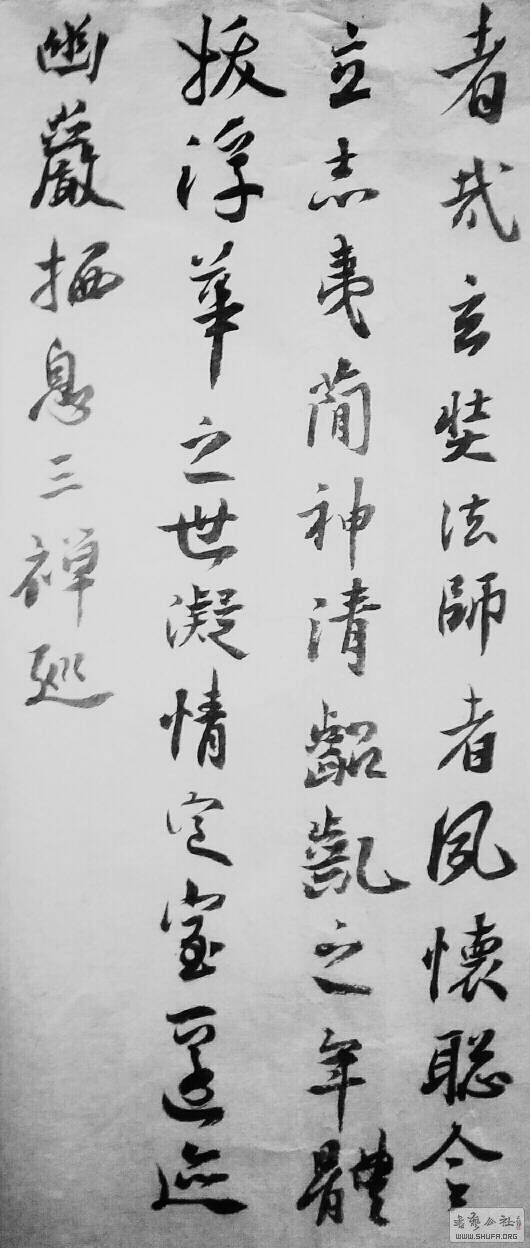 者哉玄奘法師者夙懷聰令
立志夷簡神清齠齔之年體
拔浮華之世凝情定室匿迹
幽巖栖息三禪巡
書藝公社
WWW.SHUFA.ORG